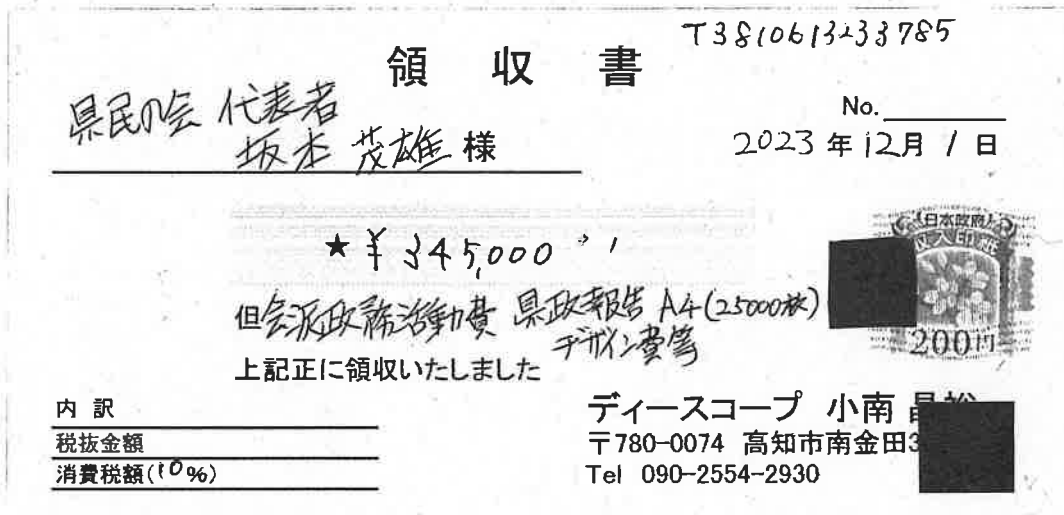 T3810613233785
領収書
県民の会 代表者
坂本 茂雄 様
No.
2023年12月1日
★¥345,000
但会派政務活動費 県政報告 A4(25000枚)
デザイン費等
上記正に領収いたしました
日本政府
収入印紙
200円
内訳
税抜金額
消費税額(10%)
ディースコープ 小南
〒780-0074 高知市南金田3
Tel 090-2554-2930